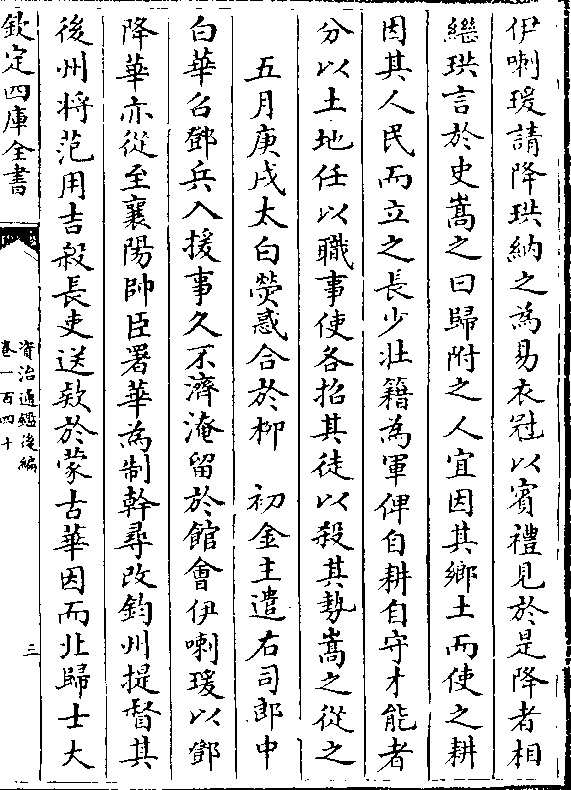 伊喇瑗請降珙納之為易衣冠以賓禮見於是降者相
繼珙言於史嵩之曰歸附之人宜因其鄉土而使之耕
因其人民而立之長少壯籍為軍俾自耕自守才能者
分以土地任以職事使各招其徒以殺其勢嵩之從之
五月庚戌太白熒惑合於柳　初金主遣右司郎中
白華召鄧兵入援事久不濟淹留於館會伊喇瑗以鄧
降華亦從至襄陽帥臣署華為制幹尋改鈞州提督其
後州將范用吉殺長吏送欵於蒙古華因而北歸士大
欽定四庫全書
資治通鑑後編
卷一百四十
三